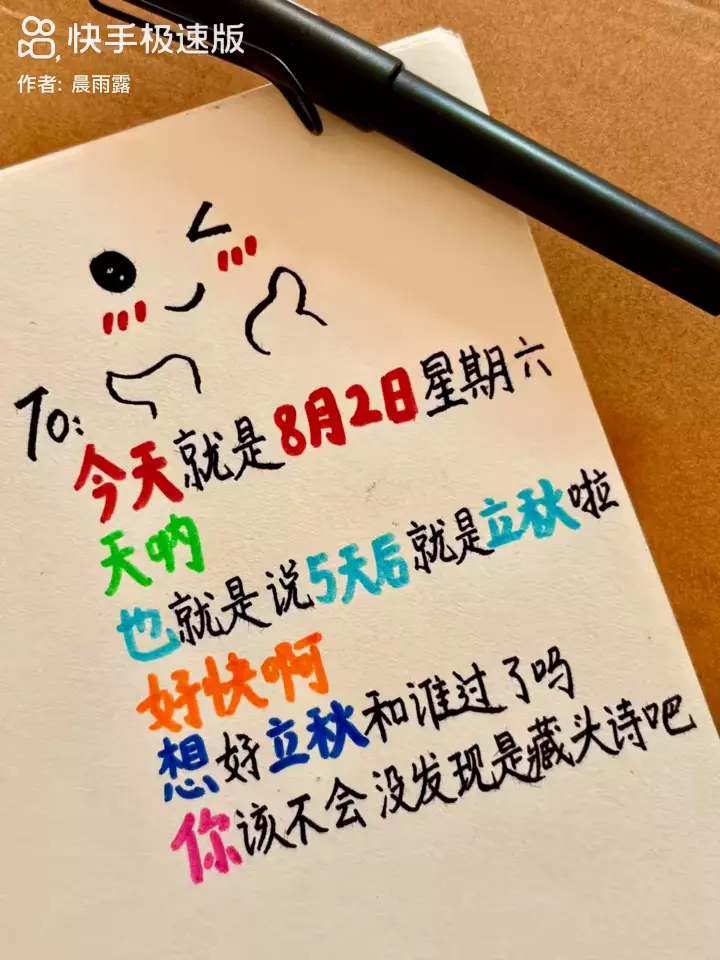 快手极速版
作者: 晨雨露
To:
今天就是8月2日星期六
天呐
也就是说5天后就是立秋啦
好快啊
想好立秋和谁过了吗
你该不会没发现是藏头诗吧